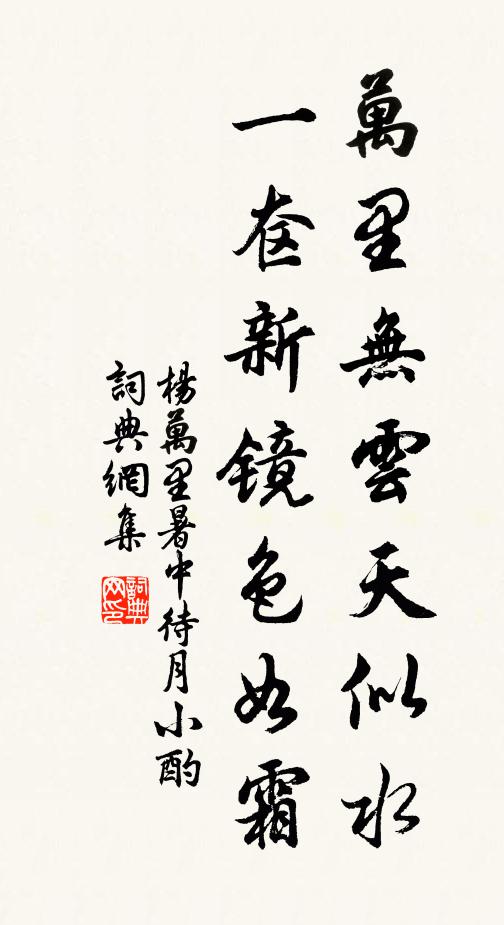 萬里無雲天似水
一奁新镜色如霜
楊萬里暑中待月小酌
詞典網集
詞典网印